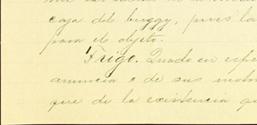 caja del buggy, pues la
para el objeto.
Trigo. Quedo en espe
anuncia o de sus
que de la existencia qu